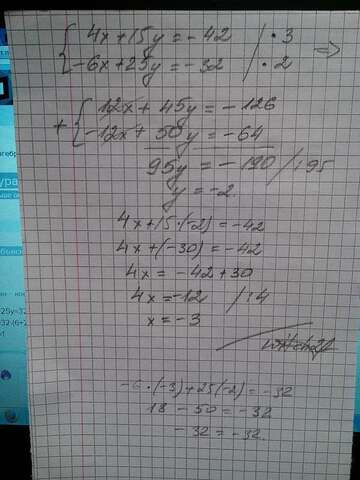 { 4x + 15y = -42 / · 3
-6x + 25y = -32 / · 2 =>
+ { 12x + 45y = -126
-12x + 50y = -64
95y = -190 / :95
y = -2
4x + 15·(-2) = -42
4x + (-30) = -42
4x = -42 + 30
4x = -12 / :4
x = -3
-6·(-3) + 25(-2) = -32
18 - 50 = -32
-32 = -32.